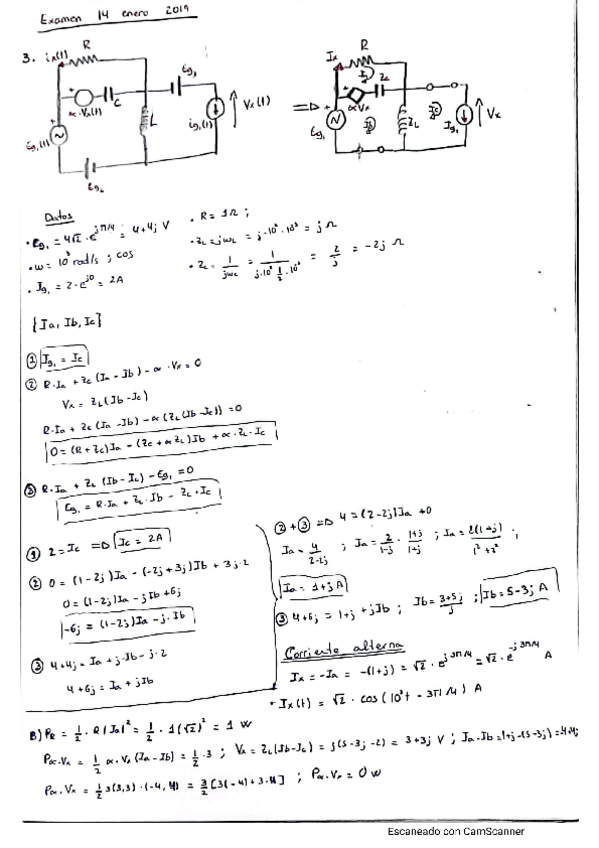 Examen 14 enero 2019
3. ix(t) R
α·Vx(t) C
Eg1(t) L ig1(t) Vx(t)
Eg2
Eg3
Ix R
αVx Zc
Eg1 ZL Ig1 Vx
Ib Ic
Datos
• Eg1 = 4√2 · e^jπ/4 = 4+4j V
• w = 10³ rad/s ; cos
• Ig1 = 2·e^j0 = 2A
• R = 1Ω ;
• ZL = jwL = j·10³·10⁻³ = j Ω
• Zc = 1/jwc = 1/(j·10³·½·10⁻³) = 2/j = -2j Ω
{Ia, Ib, Ic}
① Ig1 = Ic
② R·Ia + Zc (Ia - Ib) - α·Vx = 0
Vx = ZL (Ib - Ic)
R·Ia + Zc (Ia - Ib) - α (ZL (Ib - Ic)) = 0
0 = (R + Zc) Ia - (Zc + αZL) Ib + α·ZL·Ic
③ R·Ia + ZL (Ib - Ic) - Eg1 = 0
Eg1 = R·Ia + ZL·Ib - ZL·Ic
① 2 = Ic => Ic = 2A
② 0 = (1-2j) Ia - (-2j + 3j) Ib + 3j·2
0 = (1-2j) Ia - jIb + 6j
-6j = (1-2j) Ia - j·Ib
③ 4+4j = Ia + j·Ib - j·2
4+6j = Ia + jIb
② + ③ => 4 = (2-2j) Ia + 0
Ia = 4/(2-2j) ; Ia = 2/(1-j) · (1+j)/(1+j) ; Ia = 2(1+j)/(1²+1²) ;
Ia = 1+j A
③ 4+6j = 1+j + jIb ; Ib = (3+5j)/j ; Ib = 5-3j A
Corriente alterna
Ix = -Ia = -(1+j) = √2 · e^j3π/4 = √2 · e^-j3π/4 A
• Ix(t) = √2 · cos (10³t - 3π/4) A
B) PR = ½ · R |Ia|² = ½ · 1 (√2)² = 1 W
Pα·Vx = ½ α·Vx (Ia - Ib) = ½·3 ; Vx = ZL (Ib - Ic) = j(5-3j-2) = 3+3j V ; Ia - Ib = 1+j-(5-3j) = -4+4j
Pα·Vx = ½ 3(3,3)·(-4,4) = 3/2 [3(-4) + 3·4] ; Pα·Vx = 0 W
Escaneado con CamScanner